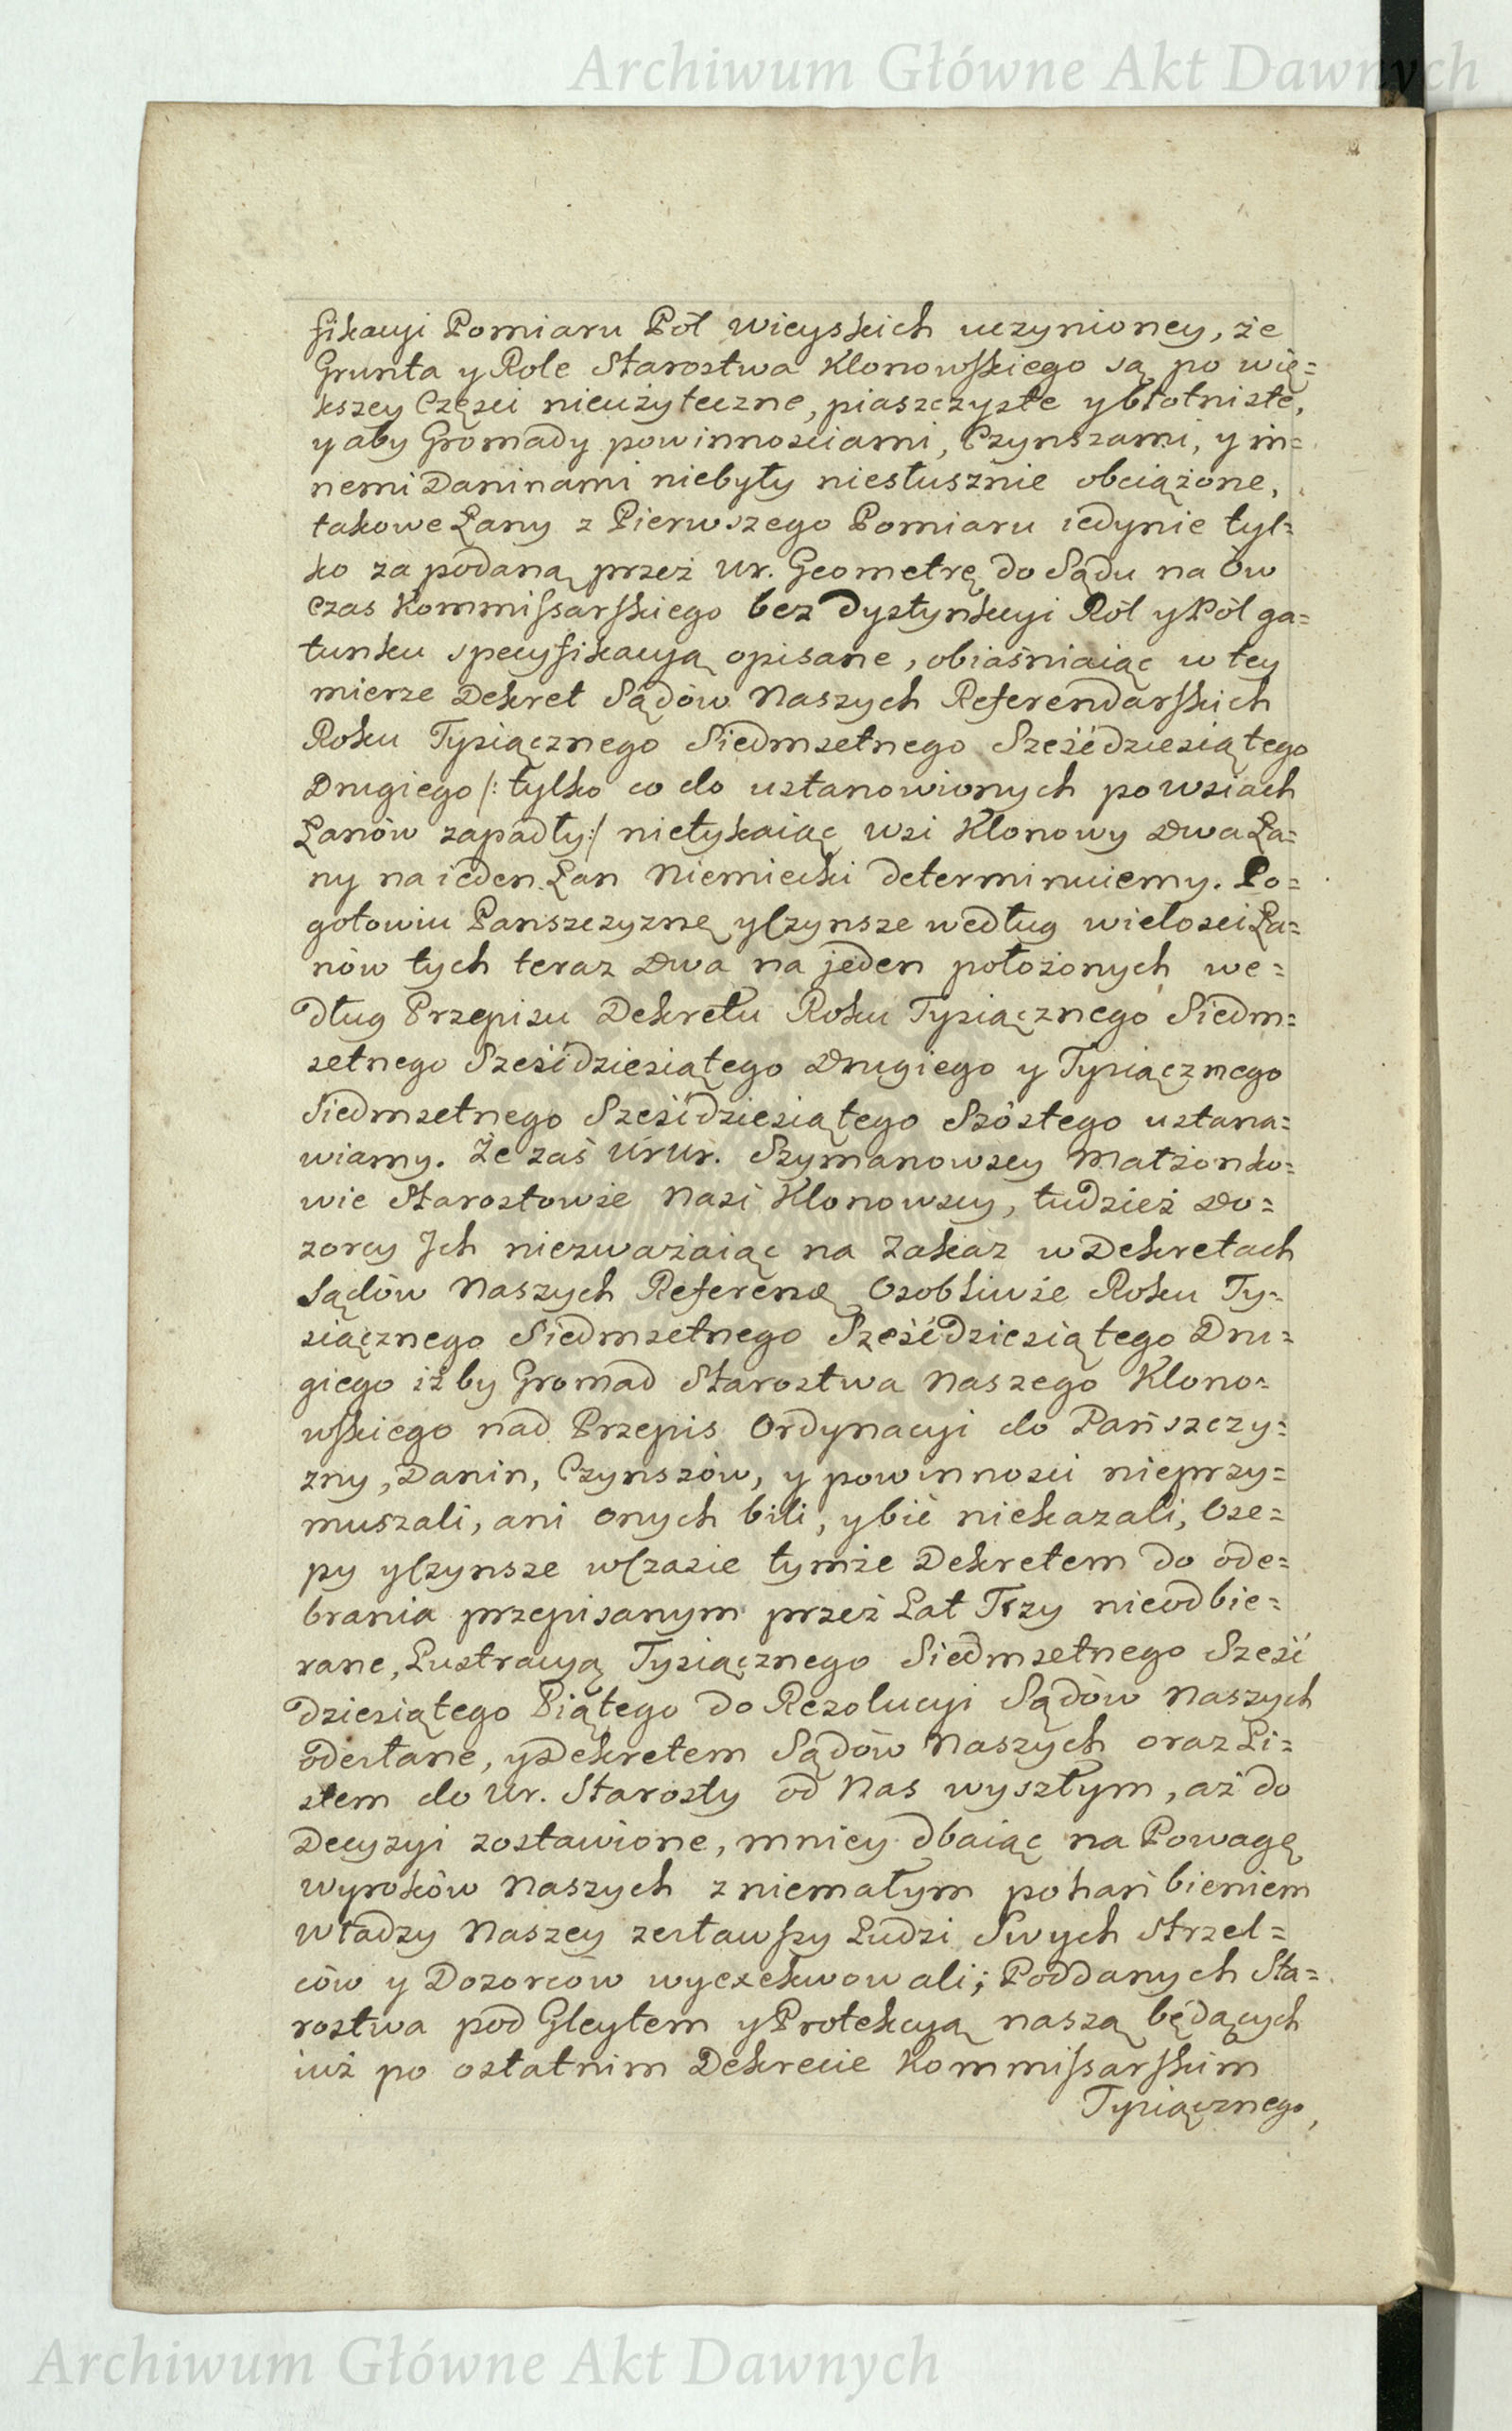 Archiwum Główne Akt Dawnych
fikacyi Pomiaru Pól wieyskich uczynioney, że
Grunta y Role Starostwa Klonowskiego są po wię=
kszey Części nieużyteczne, piaszczyste y błotniste,
y aby Gromady powinnościami, Czynszami, y in=
nemi Daninami niebyły niesłusznie obciążone,
takowe Łany z Pierwszego Pomiaru iedynie tyl=
ko za podaną przez Ur. Geometrę do Sądu na Ow
czas Kommissarskiego bez Dystynkcyi Ról y Pól ga=
tunku specyfikacyą opisane, obiaśniaiąc w tey
mierze Dekret Sądów Naszych Referendarskich
Roku Tysiącznego Siedmsetnego Sześćdziesiątego
Drugiego /: tylko co do ustanowionych po wsiach
Łanów zapadły :/ nietykaiąc wsi Klonowy Dwa Ła=
ny na ieden Łan Niemiecki determinuiemy. Po=
gotowiu Panszczyznę y Czynsze według wielości Ła=
nów tych teraz Dwa na jeden położonych we=
dług Przepisu Dekretu Roku Tysiącznego Siedm=
setnego Sześćdziesiątego Drugiego y Tysiącznego
Siedmsetnego Sześćdziesiątego Szóstego ustana=
wiamy. Że zaś Ur Ur. Szymanowscy Małżonko=
wie Starostowie Nasi Klonowscy, tudzież Do=
zorcy Jch niezważaiąc na Zakaz w Dekretach
Sądów Naszych Referend. Osobliwie Roku Ty=
siącznego Siedmsetnego Sześćdziesiątego Dru=
giego iżby Gromad Starostwa Naszego Klono=
wskiego nad Przepis Ordynacyi do Pańszczy=
zny, Danin, Czynszów, y powinności nieprzy=
muszali, ani Onych bili, y bić niekazali, Ose=
py y Czynsze w Czasie tymże Dekretem do ode=
brania przepisanym przez Lat Trzy nieodbie=
rane, Lustracyą Tysiącznego Siedmsetnego Sześć
dziesiątego Piątego do Rezolucyi Sądów Naszych
odesłane, y Dekretem Sądów Naszych oraz Li=
stem do Ur. Starosty od Nas wyszłym, aż do
Decyzyi zostawione, mniey dbaiąc na Powagę
wyroków Naszych z niemałym pohańbieniem
władzy Naszey zesławszy Ludzi Swych Strzel=
ców y Dozorców wyexekwowali; Poddanych Sta=
rostwa pod Gleytem y Protekcyą naszą będących
iuż po ostatnim Dekrecie Kommissarskim
Tysiącznego
Archiwum Główne Akt Dawnych